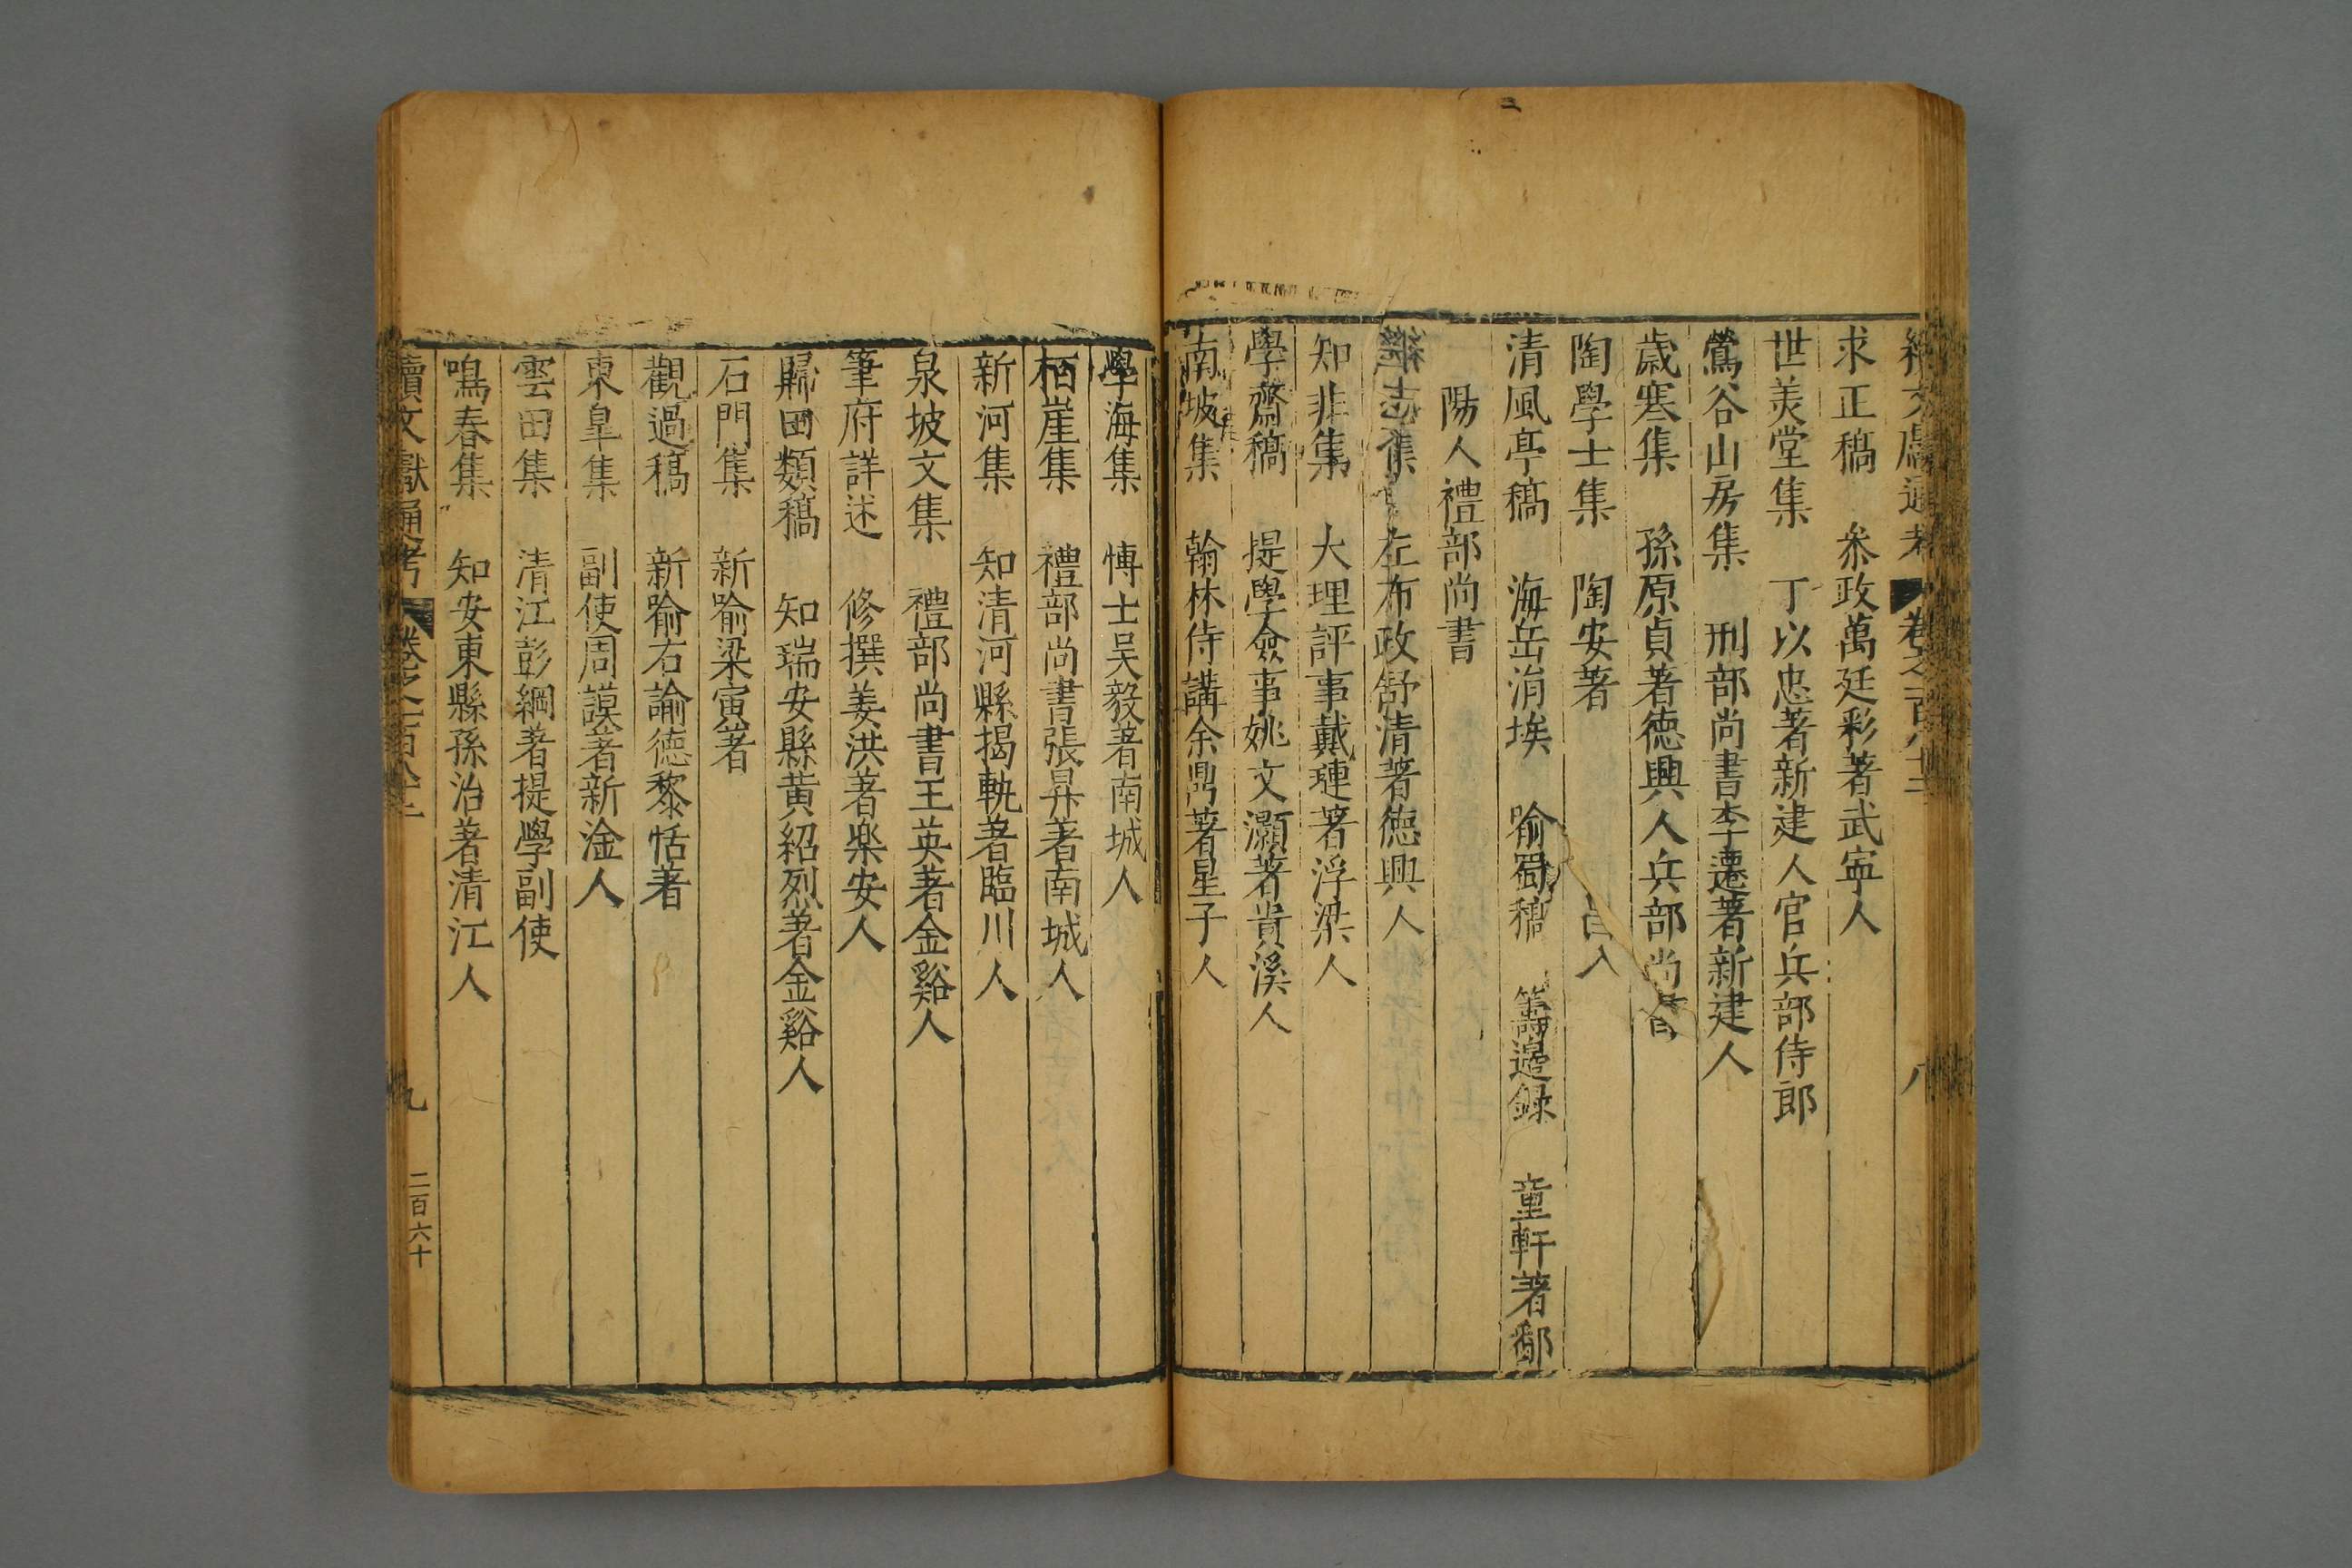 續文獻通考 卷之一百八十三 八
求正稿 叅政萬廷彩著武寧人
世美堂集 丁以忠著新建人官兵部侍郎
鶯谷山房集 刑部尚書李遷著新建人
歲寒集 孫原貞著德興人兵部尚書
陶學士集 陶安著 人
清風亭稿 海岳涓埃 喻蜀稿 籌邊錄 童軒著鄱
陽人禮部尚書
集 左布政舒清著德興人
知非集 大理評事戴璉著浮梁人
學齋稿 提學僉事姚文灝著貴溪人
南坡集 翰林侍講余鼎著星子人
學海集 博士吳毅著南城人
栢崖集 禮部尚書張昇著南城人
新河集 知清河縣揭軌著臨川人
泉坡文集 禮部尚書王英著金谿人
筆府詳述 修撰姜洪著樂安人
歸田類稿 知瑞安縣黃紹烈著金谿人
石門集 新喻梁寅著
觀過稿 新喻右諭德黎恬著
東皐集 副使周謨著新淦人
雲田集 清江彭綱著提學副使
鳴春集 知安東縣孫治著清江人
續文獻通考 卷之一百八十三 九 二百六十